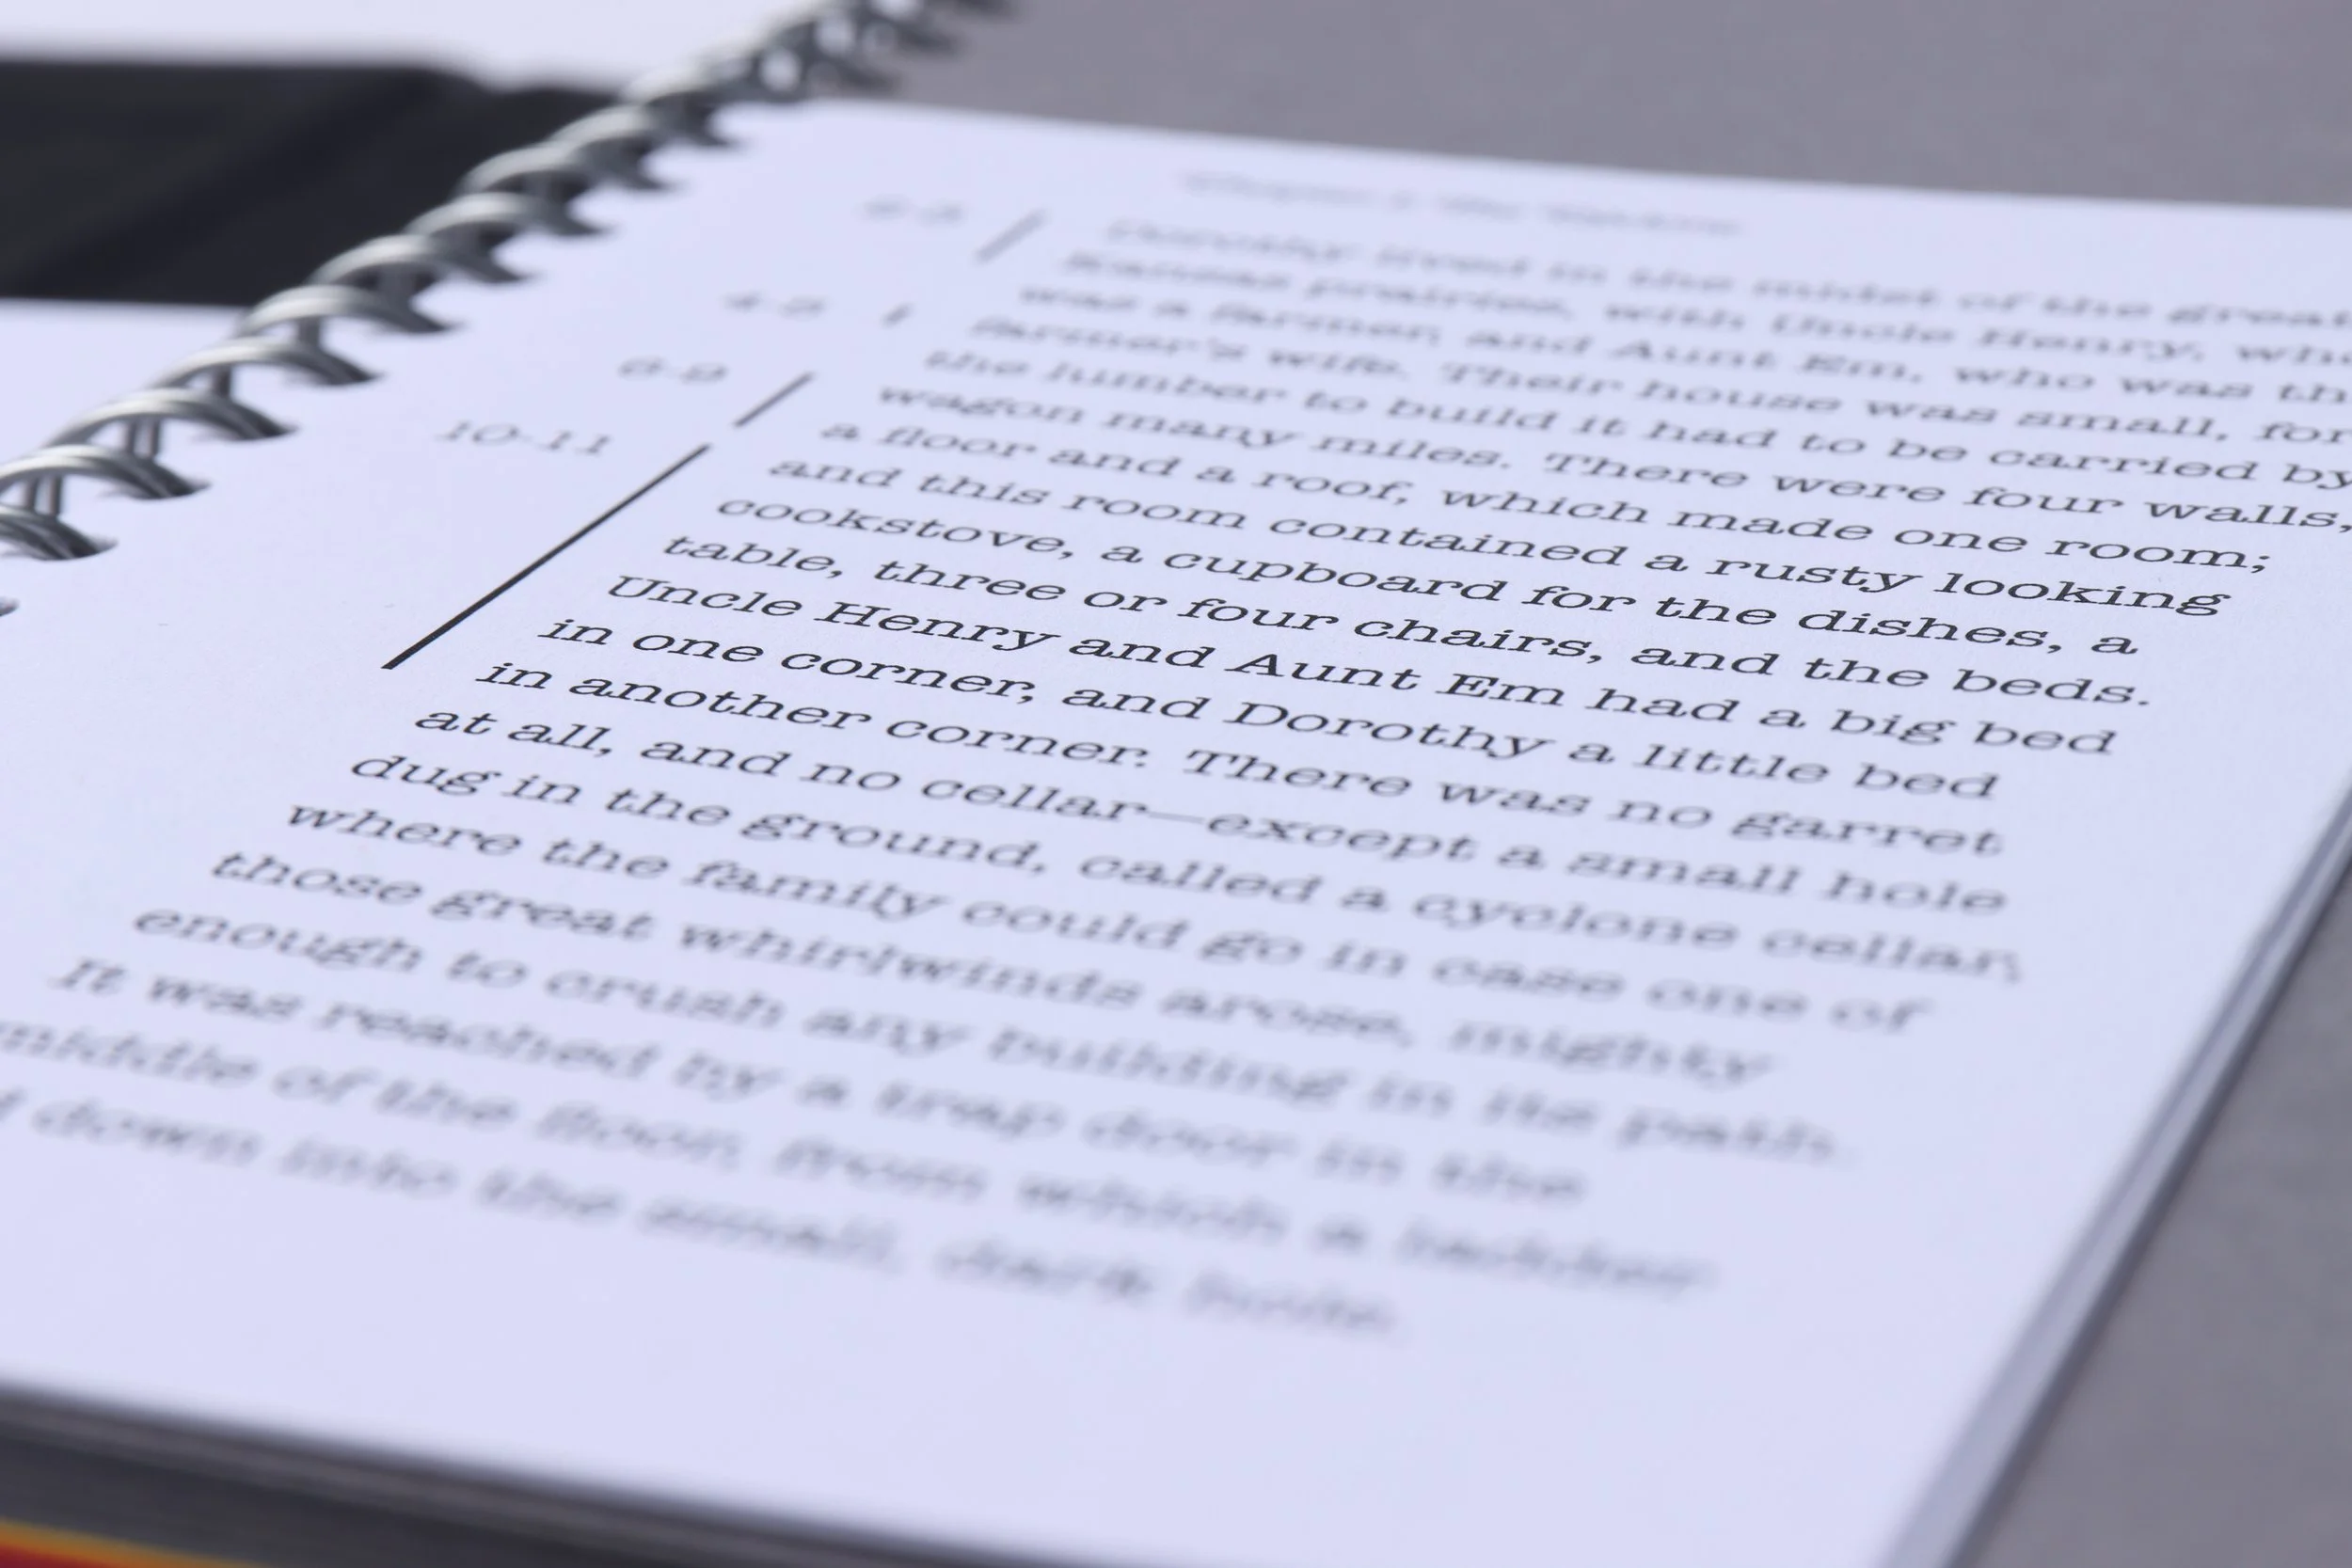 Dorothy lived in the midst of the great
Kansas prairies, with Uncle Henry, who
was a farmer, and Aunt Em, who was the
farmer's wife. Their house was small, for
the lumber to build it had to be carried by
wagon many miles. There were four walls,
a floor and a roof, which made one room;
and this room contained a rusty looking
cookstove, a cupboard for the dishes, a
table, three or four chairs, and the beds.
10-11
Uncle Henry and Aunt Em had a big bed
in one corner, and Dorothy a little bed
in another corner. There was no garret
at all, and no cellar—except a small hole
dug in the ground, called a cyclone cellar,
where the family could go in case one of
those great whirlwinds arose, mighty
enough to crush any building in its path.
It was reached by a trap door in the
middle of the floor, from which a ladder
down into the small, dark hole.